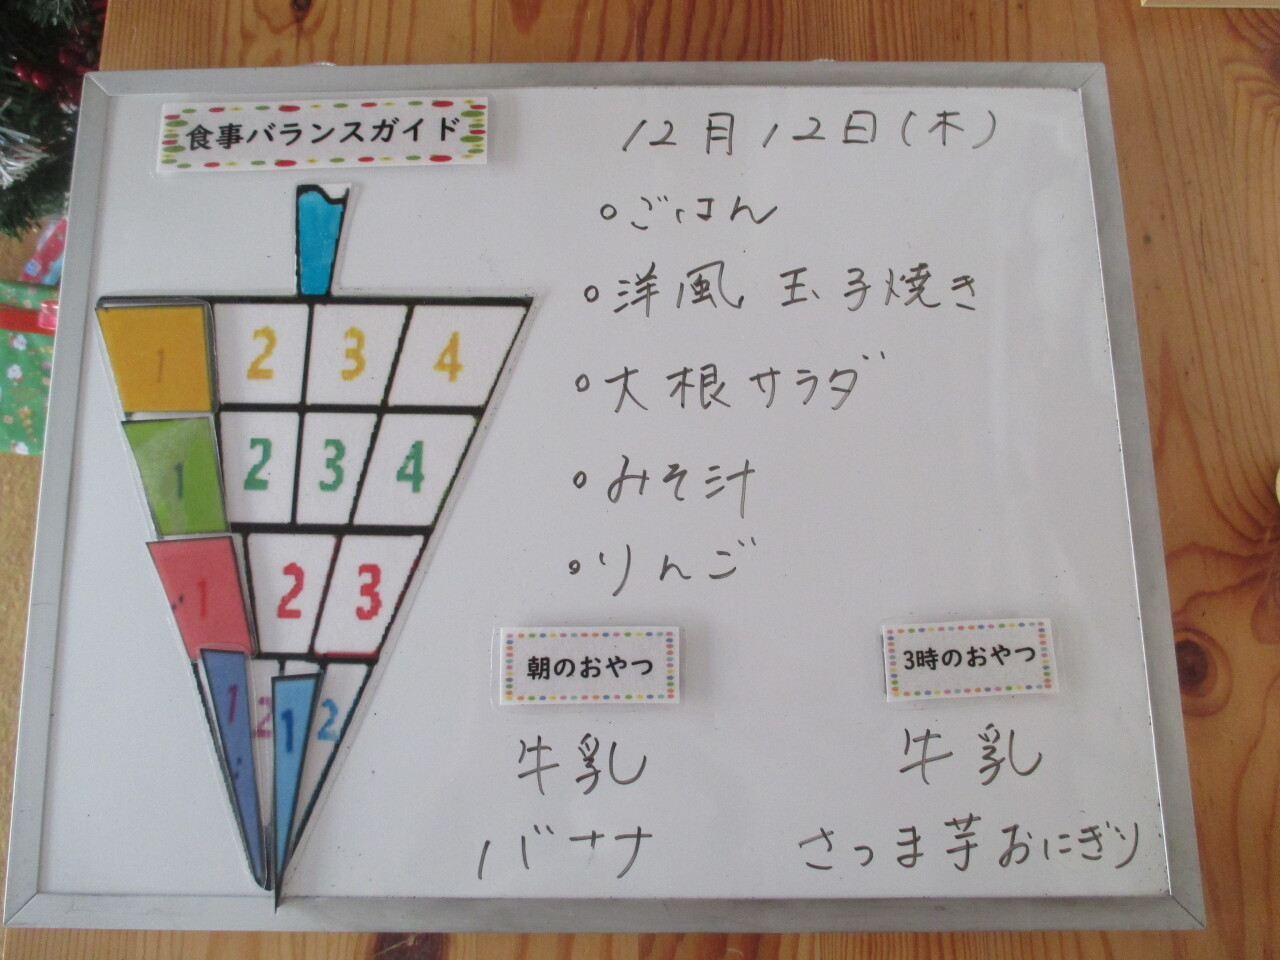 食事バランスガイド
12月12日(木)
ごはん
洋風 玉子焼き
大根サラダ
みそ汁
りんご
1 2 3 4
1 2 3 4
1 2 3
1 2 1 2
朝のおやつ
牛乳
バナナ
3時のおやつ
牛乳
さつま芋おにぎり